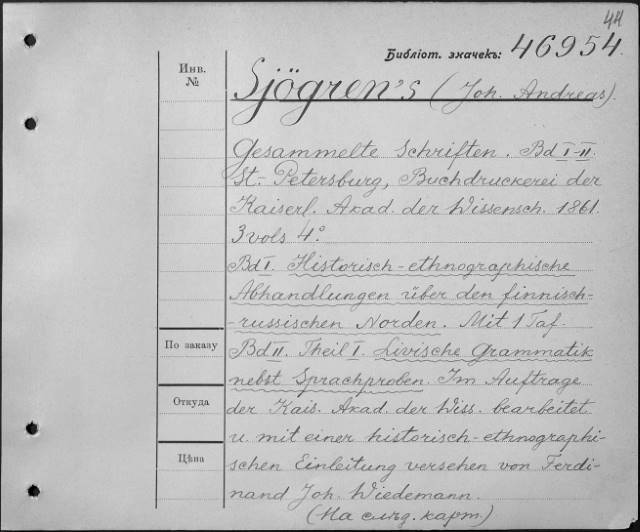 44
Библіот. значекъ: 46954.
Инв.
№
Sjögren's (Joh. Andreas).
Gesammelte Schriften. Bd I-II.
St. Petersburg, Buchdruckerei der
Kaiserl. Akad. der Wissensch. 1861.
3 vols 4°.
Bd I. Historisch-ethnographische
Abhandlungen über den finnisch-
-russischen Norden. Mit 1 Taf.
По заказу
Bd II. Theil I. Livische Grammatik
nebst Sprachproben. Im Auftrage
Откуда
der Kais. Akad. der Wiss. bearbeitet
u. mit einer historisch-ethnographi-
Цѣна
schen Einleitung versehen von Ferdi-
nand Joh. Wiedemann.
(На слѣд. карт.)